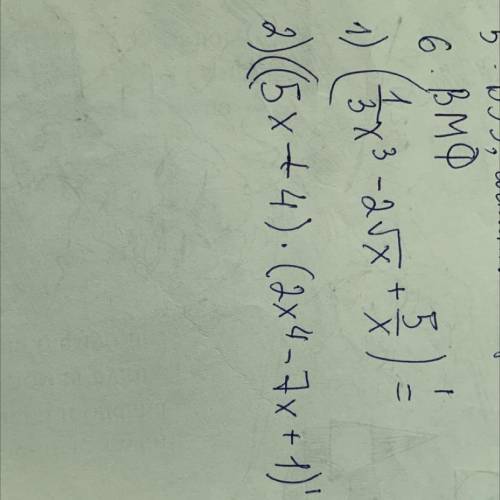 6. ВМФ
1) (1/3 x³ - 2√x + 5/x)' =
2) ((5x + 4) · (2x⁴ - 7x + 1)'